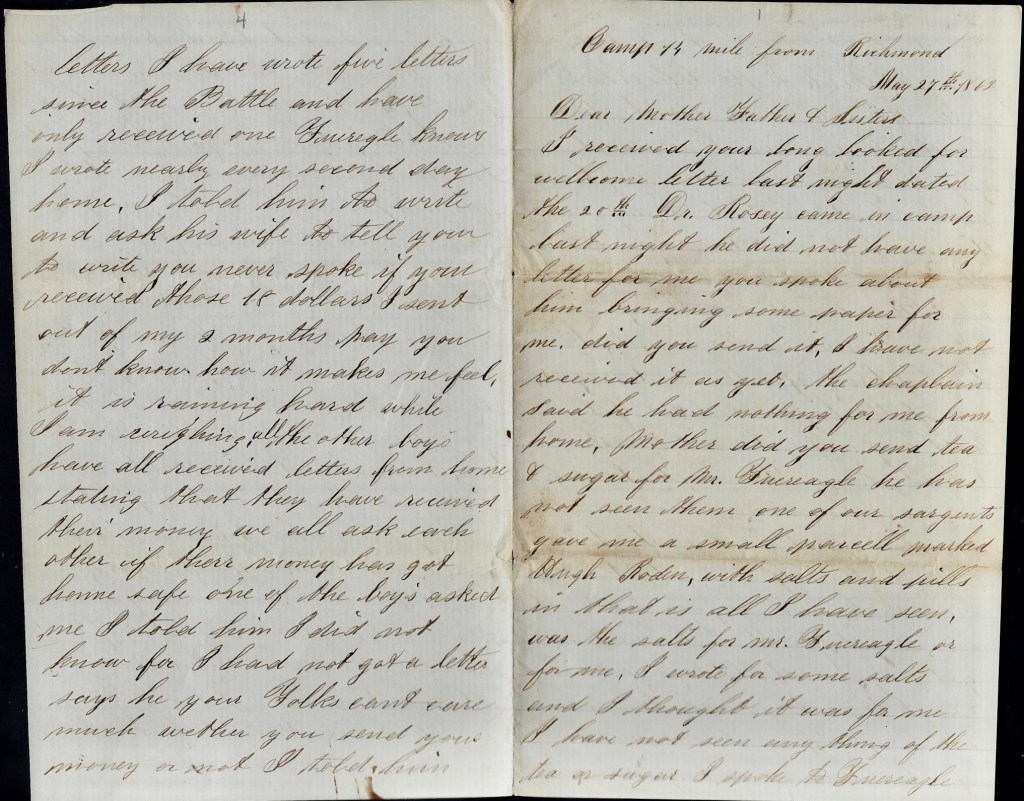 4
letters I have wrote five letters
since the Battle and have
only received one Fuereagle knows
I wrote nearly every second day
home, I told him to write
and ask his wife to tell your
to write you never spoke if your
received those 18 dollars I sent
out of my 2 months pay you
don't know how it makes me feel,
it is raining hard while
I am all the other boys
have all received letters from home
stating that they have received
their money we all ask each
other if their money has got
home safe one of the boys asked
me I told him I did not
know for I had not got a letter
says he your Folks cant care
much wether you send your
money or not I told him
1
Camp mile from Richmond
May 27th 1862
Dear Mother Father & Sisters
I received your long looked for
wellcome letter last night dated
the 20th Dr. Rosey came in camp
last night he did not have any
letter for me you spoke about
him bringing some paper for
me. did you send it, I have not
received it as yet. the chaplain
said he had nothing for me from
home, Mother did you send tea
& sugar for Mr. Fuereagle he has
not seen them one of our sargents
gave me a small parcell marked
Hugh Roden, with salts and pills
in that is all I have seen,
was the salts for Mr. Fuereagle or
for me, I wrote for some salts
and I thought it was for me
I have not seen any thing of the
tea or sugar I spoke to Fuereagle